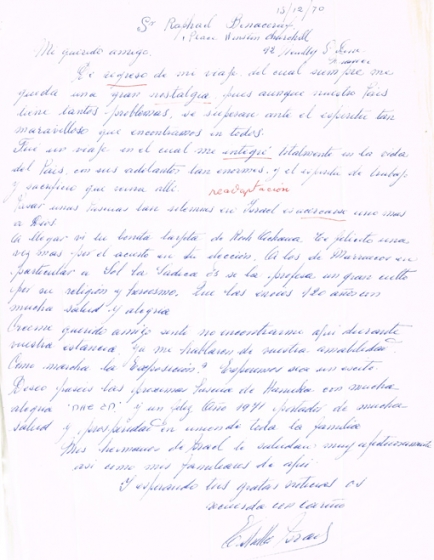 13/12/70
Sr Raphael Benazeraf
1 Place Winston Churchill
92 Neuilly S. Seine
France
Mi querido amigo.
De regreso de mi viaje del cual siempre me
queda una gran nostalgia, pues aunque nuestro Pais
tiene tantos problemas, se superan ante el espiritu tan
maravilloso que encontramos en todos.
Fue un viaje en el cual me integré totalmente en la vida
del Pais, con sus adelantos tan enormes, y el espiritu de trabajo
y sacrificio que reina alli.
readaptación
Pasar unas fiestas tan solemnes en Israel es acercarse uno mas
a Dios.
A llegar vi su bonita tarjeta de Roch Hachana. Te felicito una
vez mas por el acierto en tu elección. A los de Marruecos en
particular a Sol la Sadica se la profesa un gran culto
por su religión y heroismo. Que las veais 120 años con
mucha salud y alegria
Creeme querido amigo senti no encontrarme aqui durante
vuestra estancia, ya me hablaron de vuestra amabilidad
Como marcha la Exposición? Esperemos sea un exito.
Deseo paseis las proximas fiestas de Hanuka con mucha
alegria y un feliz Año 1971 portador de mucha
salud y prosperidad en union de toda la familia
Mis hermanos de Israel te saludan muy
asi como mis familiares de aqui
Y esperando tus gratas noticias os
recuerda con cariño